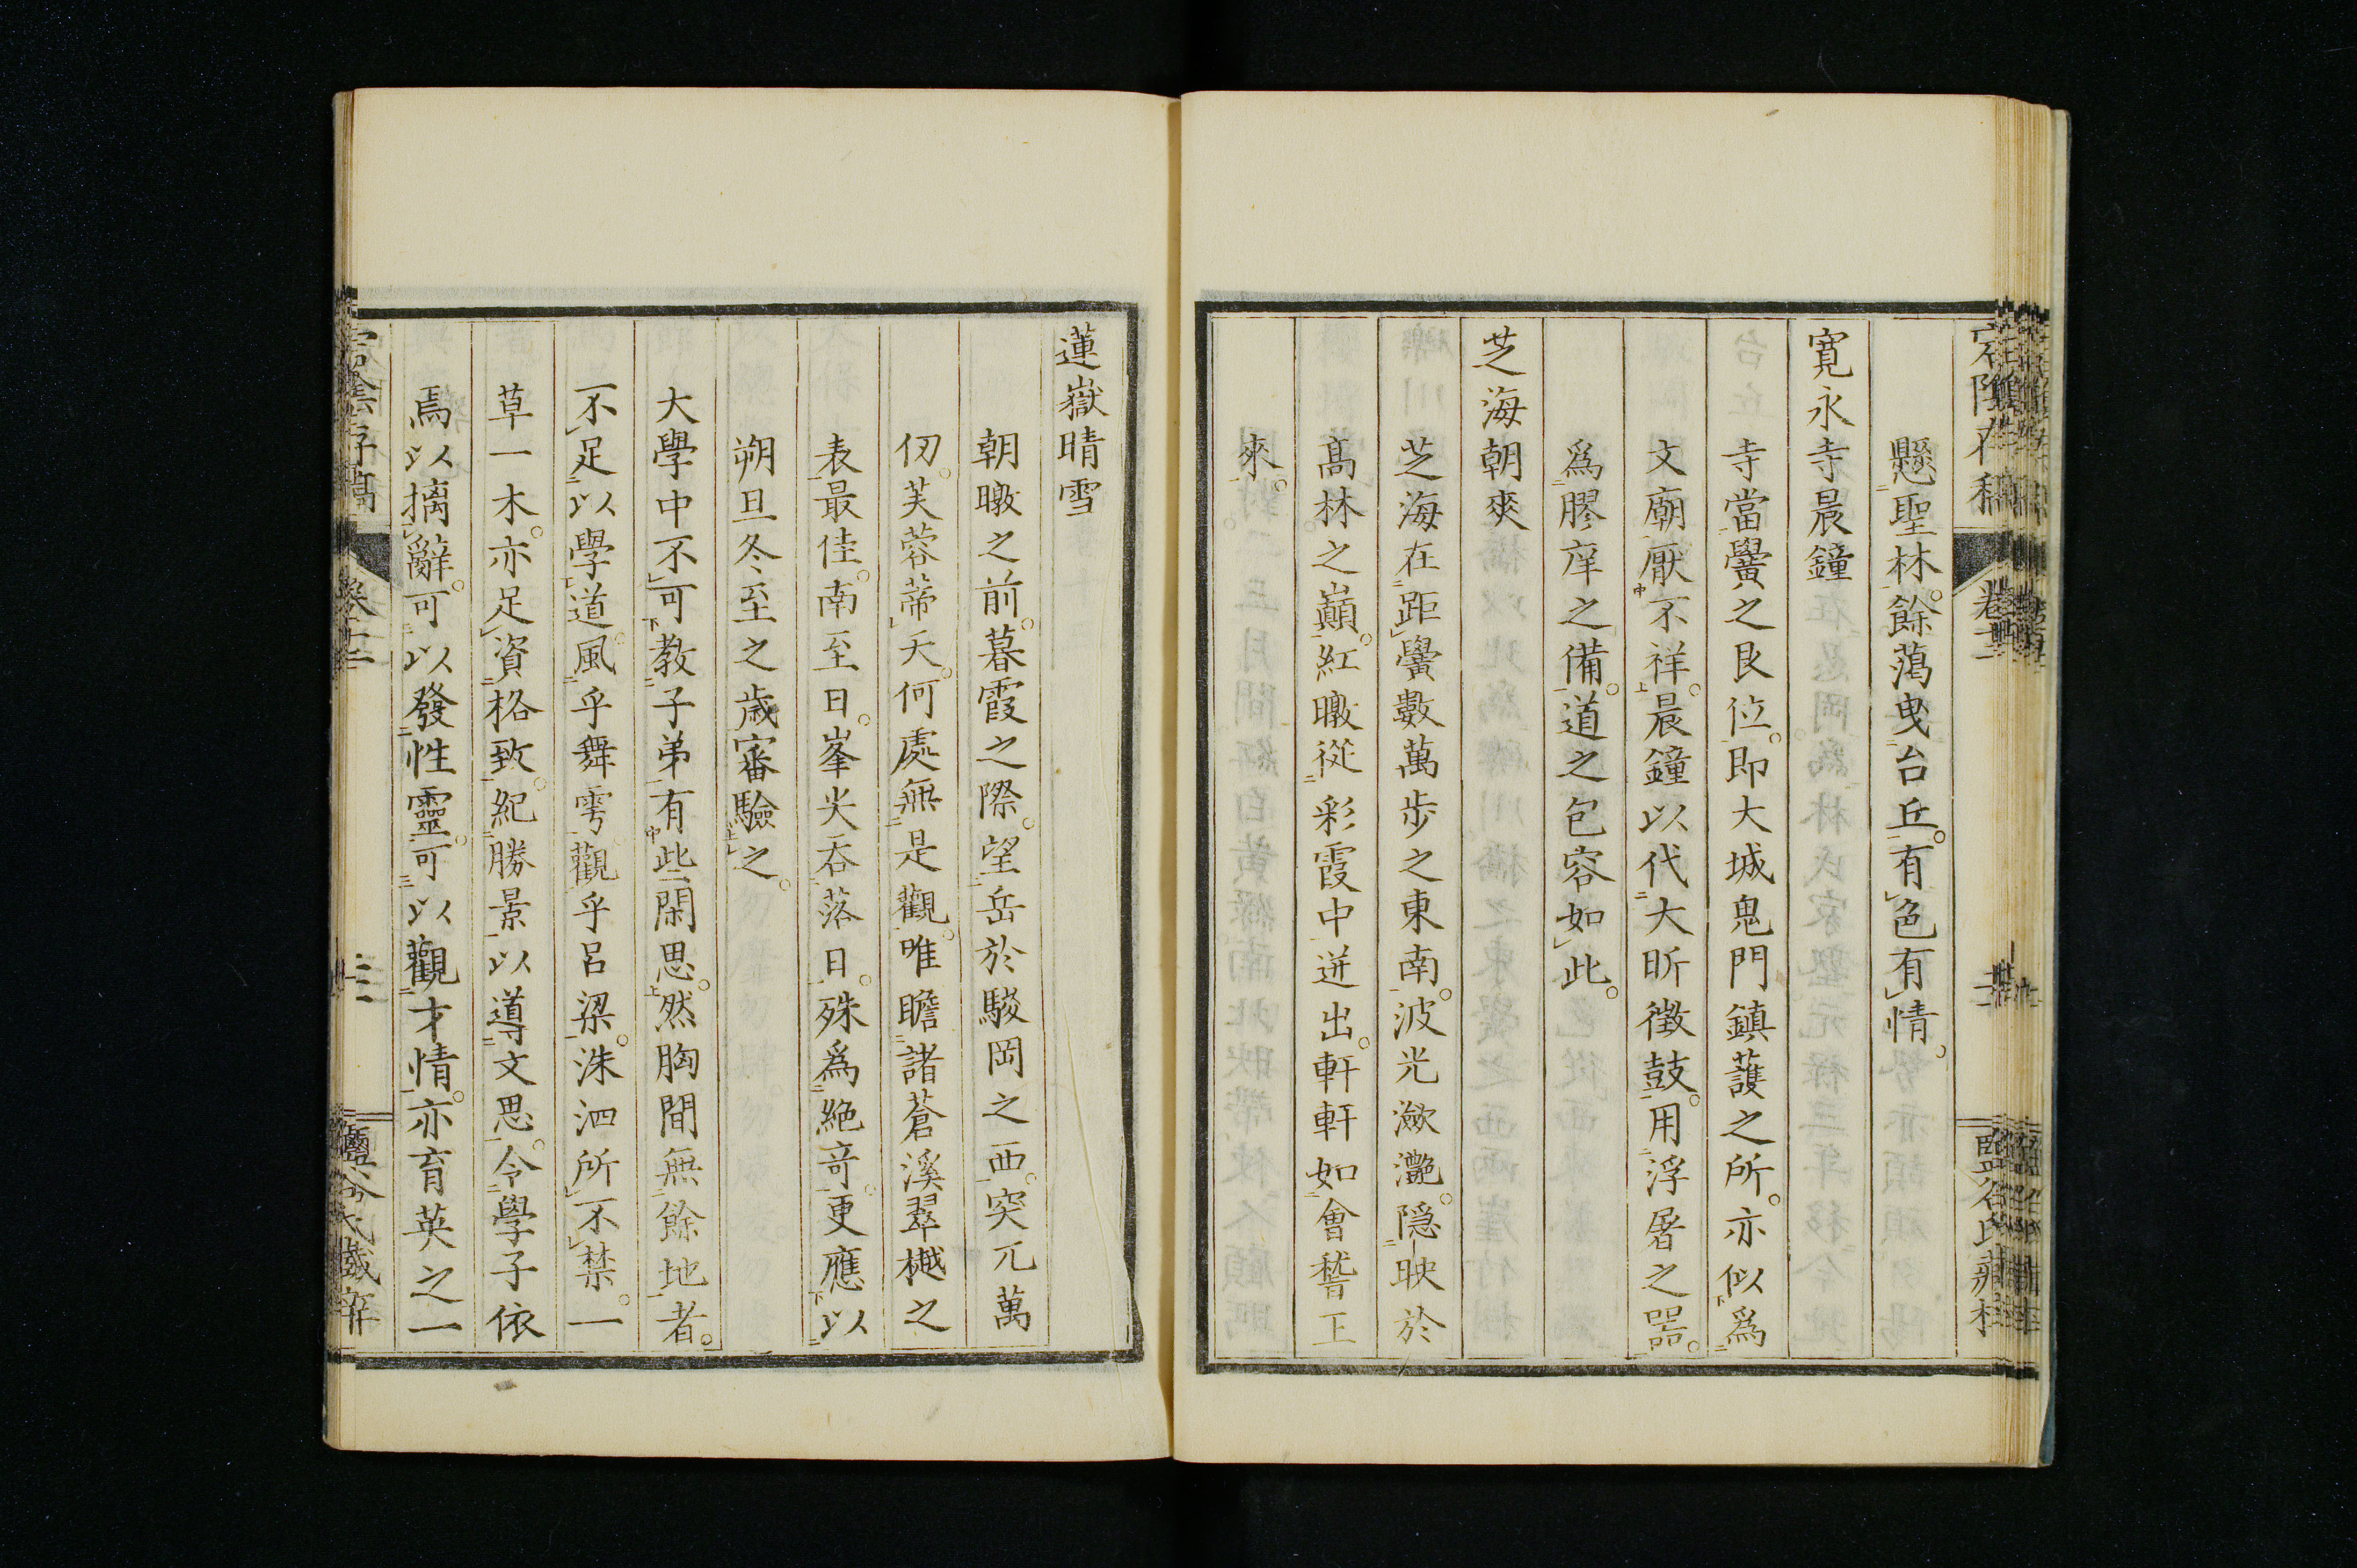 懸聖林。餘蕩曳台丘。有色有情。
寛永寺晨鐘
寺當黌之艮位。即大城鬼門鎮護之所。亦似爲
文廟厭不祥。晨鐘以代大昕徴鼓。用浮屠之器。
爲膠庠之備。道之包容如此。
芝海朝爽
芝海在距黌數萬歩之東南。波光瀲灔。隠映於
髙林之巓。紅暾從彩霞中迸出。軒軒如會稽王
來。
蓮嶽晴雪
朝暾之前。暮霞之際。望岳於駿岡之西。突兀萬
仞。芙蓉蔕天。何處無是觀。唯瞻諸蒼溪翠樾之
表最佳。南至日。峯尖呑落日。殊爲絶竒。更應以
朔旦冬至之歳審驗之。
大學中不可教子弟有些閑思。然胸間無餘地者。
不足以學道。風乎舞雩觀乎呂梁。洙泗所不禁。一
草一木。亦足資格致。紀勝景以導文思。令學子依
焉以摛辭。可以發性靈。可以觀才情。亦育英之一